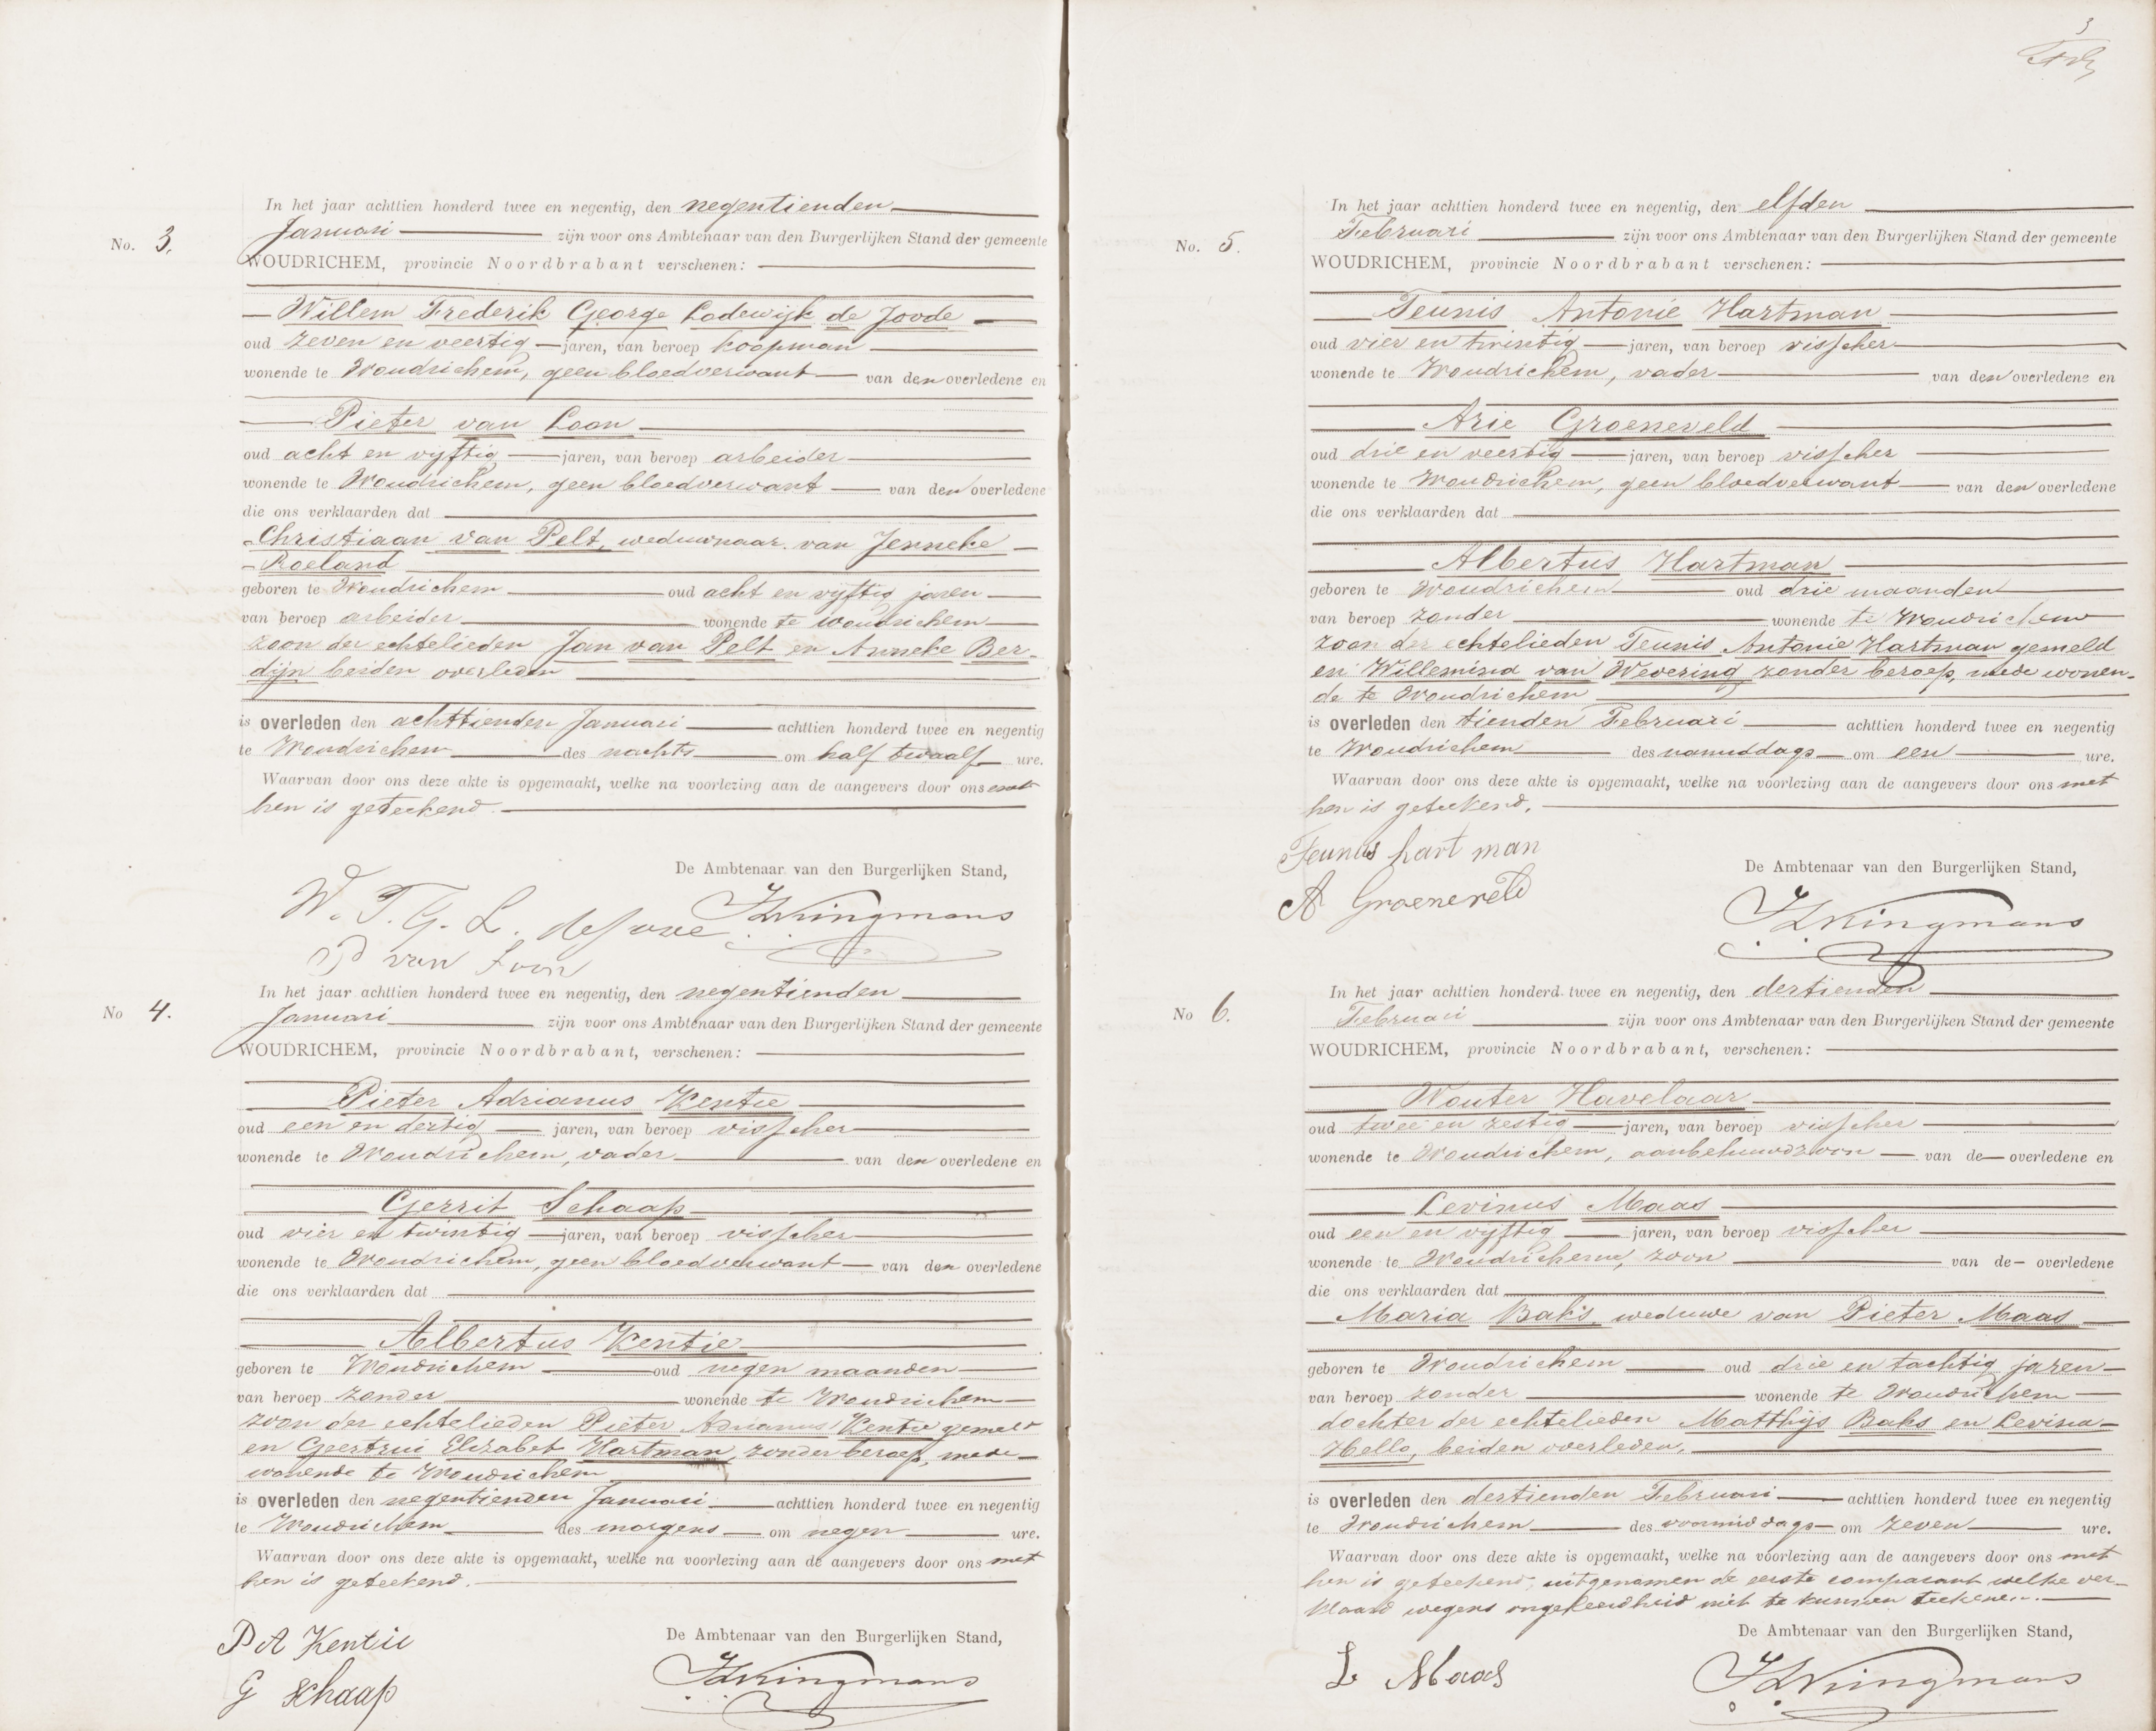 No. 3.
In het jaar achttien honderd twee en negentig, den negentienden
Januari zijn voor ons Ambtenaar van den Burgerlijken Stand der gemeente
WOUDRICHEM, provincie Noordbrabant verschenen:
Willem Frederik George Lodewijk de Joode
oud zeven en veertig jaren, van beroep koopman
wonende te Woudrichem, geen bloedverwant van den overledene en
Pieter van Loon
oud acht en vijftig jaren, van beroep arbeider
wonende te Woudrichem, geen bloedverwant van den overledene
die ons verklaarden dat
Christiaan van Pelt, weduwnaar van Jenneke
Roeland
geboren te Woudrichem oud acht en vijftig jaren
van beroep arbeider wonende te Woudrichem
zoon der echtelieden Jan van Pelt en Anneke Ber-
dijn beiden overleden
is overleden den achttienden Januari achttien honderd twee en negentig
te Woudrichem des nachts om half twaalf ure.
Waarvan door ons deze akte is opgemaakt, welke na voorlezing aan de aangevers door ons met
hen is geteekend.
De Ambtenaar van den Burgerlijken Stand,
W. F. G. L. de Jode
P van Loon
No 4.
In het jaar achttien honderd twee en negentig, den negentienden
Januari zijn voor ons Ambtenaar van den Burgerlijken Stand der gemeente
WOUDRICHEM, provincie Noordbrabant, verschenen:
Pieter Adrianus Kentie
oud een en dertig jaren, van beroep visscher
wonende te Woudrichem, vader van den overledene en
Gerrit Schaap
oud vier en twintig jaren, van beroep visscher
wonende te Woudrichem, geen bloedverwant van den overledene
die ons verklaarden dat
Albertus Kentie
geboren te Woudrichem oud negen maanden
van beroep zonder wonende te Woudrichem
zoon der echtelieden Pieter Adrianus Kentie gemeld
en Geertrui Elizabet Hartman, zonder beroep, mede
wonende te Woudrichem
is overleden den negentienden Januari achttien honderd twee en negentig
te Woudrichem des morgens om negen ure.
Waarvan door ons deze akte is opgemaakt, welke na voorlezing aan de aangevers door ons met
hen is geteekend.
De Ambtenaar van den Burgerlijken Stand,
P A Kentie
G Schaap
3
No. 5.
In het jaar achttien honderd twee en negentig, den elfden
Februari zijn voor ons Ambtenaar van den Burgerlijken Stand der gemeente
WOUDRICHEM, provincie Noordbrabant verschenen:
Teunis Antonie Hartman
oud vier en twintig jaren, van beroep visscher
wonende te Woudrichem, vader van den overledene en
Arie Groeneveld
oud drie en veertig jaren, van beroep visscher
wonende te Woudrichem, geen bloedverwant van den overledene
die ons verklaarden dat
Albertus Hartman
geboren te Woudrichem oud drie maanden
van beroep zonder wonende te Woudrichem
zoon der echtelieden Teunis Antonie Hartman gemeld
en Willemina van Wevering zonder beroep, mede wonen-
de te Woudrichem
is overleden den tienden Februari achttien honderd twee en negentig
te Woudrichem des namiddags om een ure.
Waarvan door ons deze akte is opgemaakt, welke na voorlezing aan de aangevers door ons met
hen is geteekend.
Teunis hart man
De Ambtenaar van den Burgerlijken Stand,
A Groeneveld
No 6.
In het jaar achttien honderd twee en negentig, den dertienden
Februari zijn voor ons Ambtenaar van den Burgerlijken Stand der gemeente
WOUDRICHEM, provincie Noordbrabant, verschenen:
Wouter Havelaar
oud twee en zestig jaren, van beroep visscher
wonende te Woudrichem, aanbehuwdzoon van de overledene en
Levinus Maas
oud een en vijftig jaren, van beroep visscher
wonende te Woudrichem, zoon van de overledene
die ons verklaarden dat
Maria Baks, weduwe van Pieter Maas
geboren te Woudrichem oud drie en tachtig jaren
van beroep zonder wonende te Woudrichem
dochter der echtelieden Matthijs Baks en Levina
Hello, beiden overleden.
is overleden den dertienden Februari achttien honderd twee en negentig
te Woudrichem des voormiddags om zeven ure.
Waarvan door ons deze akte is opgemaakt, welke na voorlezing aan de aangevers door ons met
hen is geteekend, uitgenomen de eerste comparant welke ver-
klaard wegens ongeleerdheid niet te kunnen teekenen.
De Ambtenaar van den Burgerlijken Stand,
L Maas